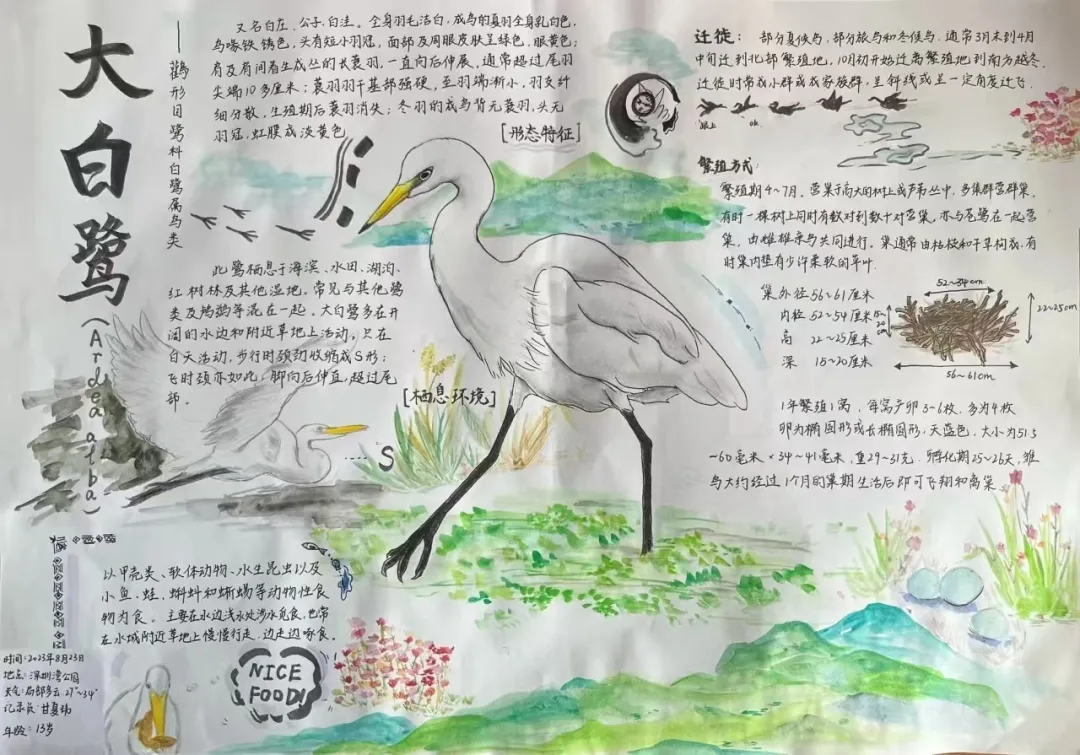 大白鹭
(Ardea alba)
——鹳形目鹭科白鹭属鸟类
又名白庄、公子、白洼。全身羽毛洁白,成鸟的夏羽全身乳白色,
鸟喙铁锈色,头有短小羽冠,面部及周眼皮肤呈绿色,眼黄色;
肩及肩间着生成丛的长蓑羽,一直向后伸展,通常超过尾羽
尖端10多厘米;蓑羽羽干基部强硬,至羽端渐小,羽支纤
细分散,生殖期后蓑羽消失;冬羽的成鸟背无蓑羽,头无
羽冠,虹膜成淡黄色
[形态特征]
此鹭栖息于海滨、水田、湖泊、
红树林及其他湿地,常见与其他鹭
类及鸬鹚等混在一起。大白鹭多在开
阔的水边和附近草地上活动,只在
白天活动,步行时颈劲收缩成S形;
飞时颈亦如此,脚向后伸直,超过尾
部。
[栖息环境]
S
以甲壳类、软体动物、水生昆虫以及
小鱼、蛙、蝌蚪和蜥蜴等动物性食
物为食。主要在水边浅水处涉水觅食,也常
在水域附近草地上慢慢行走,边走边啄食。
NICE
FOOD!
时间:2023年8月23日
地点:深圳湾公园
天气:局部多云 27°~34°
记录员:甘夏
年龄:13岁
迁徙:部分夏候鸟,部分旅鸟和冬候鸟,通常3月末到4月
中旬迁到北部繁殖地,10月初开始迁离繁殖地到南方越冬。
迁徙时常成小群或成家族群,呈斜线或呈一定角度迁飞。
繁殖方式:
繁殖期4~7月。营巢于高大的树上或芦苇丛中,多集群营群巢,
有时一棵树上同时有数对到数十对营巢,亦与苍鹭在一起营
巢,由雌雄亲鸟共同进行。巢通常由枯枝和干草构成,有
时巢内垫有少许柔软的草叶.
巢外径56~61厘米
内径 52~54厘米
高 22~25厘米
深 15~20厘米
52~54cm
15~20cm
22~25cm
56~61cm
1年繁殖1窝,每窝产卵3~6枚,多为4枚
卵为椭圆形或长椭圆形,天蓝色,大小为51.5
~60毫米×34~41毫米,重29~31克.孵化期25~26天,雏
鸟大约经过1个月的巢期生活后即可飞翔和离巢